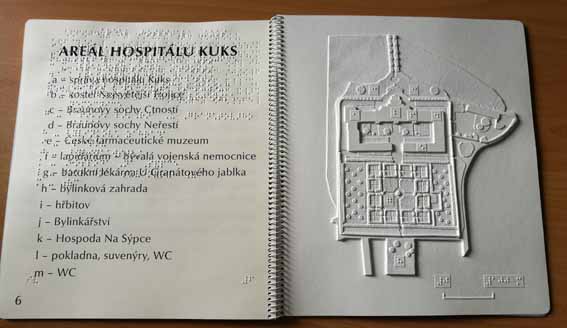 AREÁL HOSPITÁLU KUKS
a – správa hospitálu Kuks
b – kostel Nejsvětější Trojice
c – Braunovy sochy Ctností
d – Braunovy sochy Neřestí
e – České farmaceutické muzeum
f – lapidárium – bývalá vojenská nemocnice
g – barokní lékárna U Granátového jablka
h – bylinková zahrada
i – hřbitov
j – Bylinkářství
k – Hospoda Na Sýpce
l – pokladna, suvenýry, WC
m – WC
6